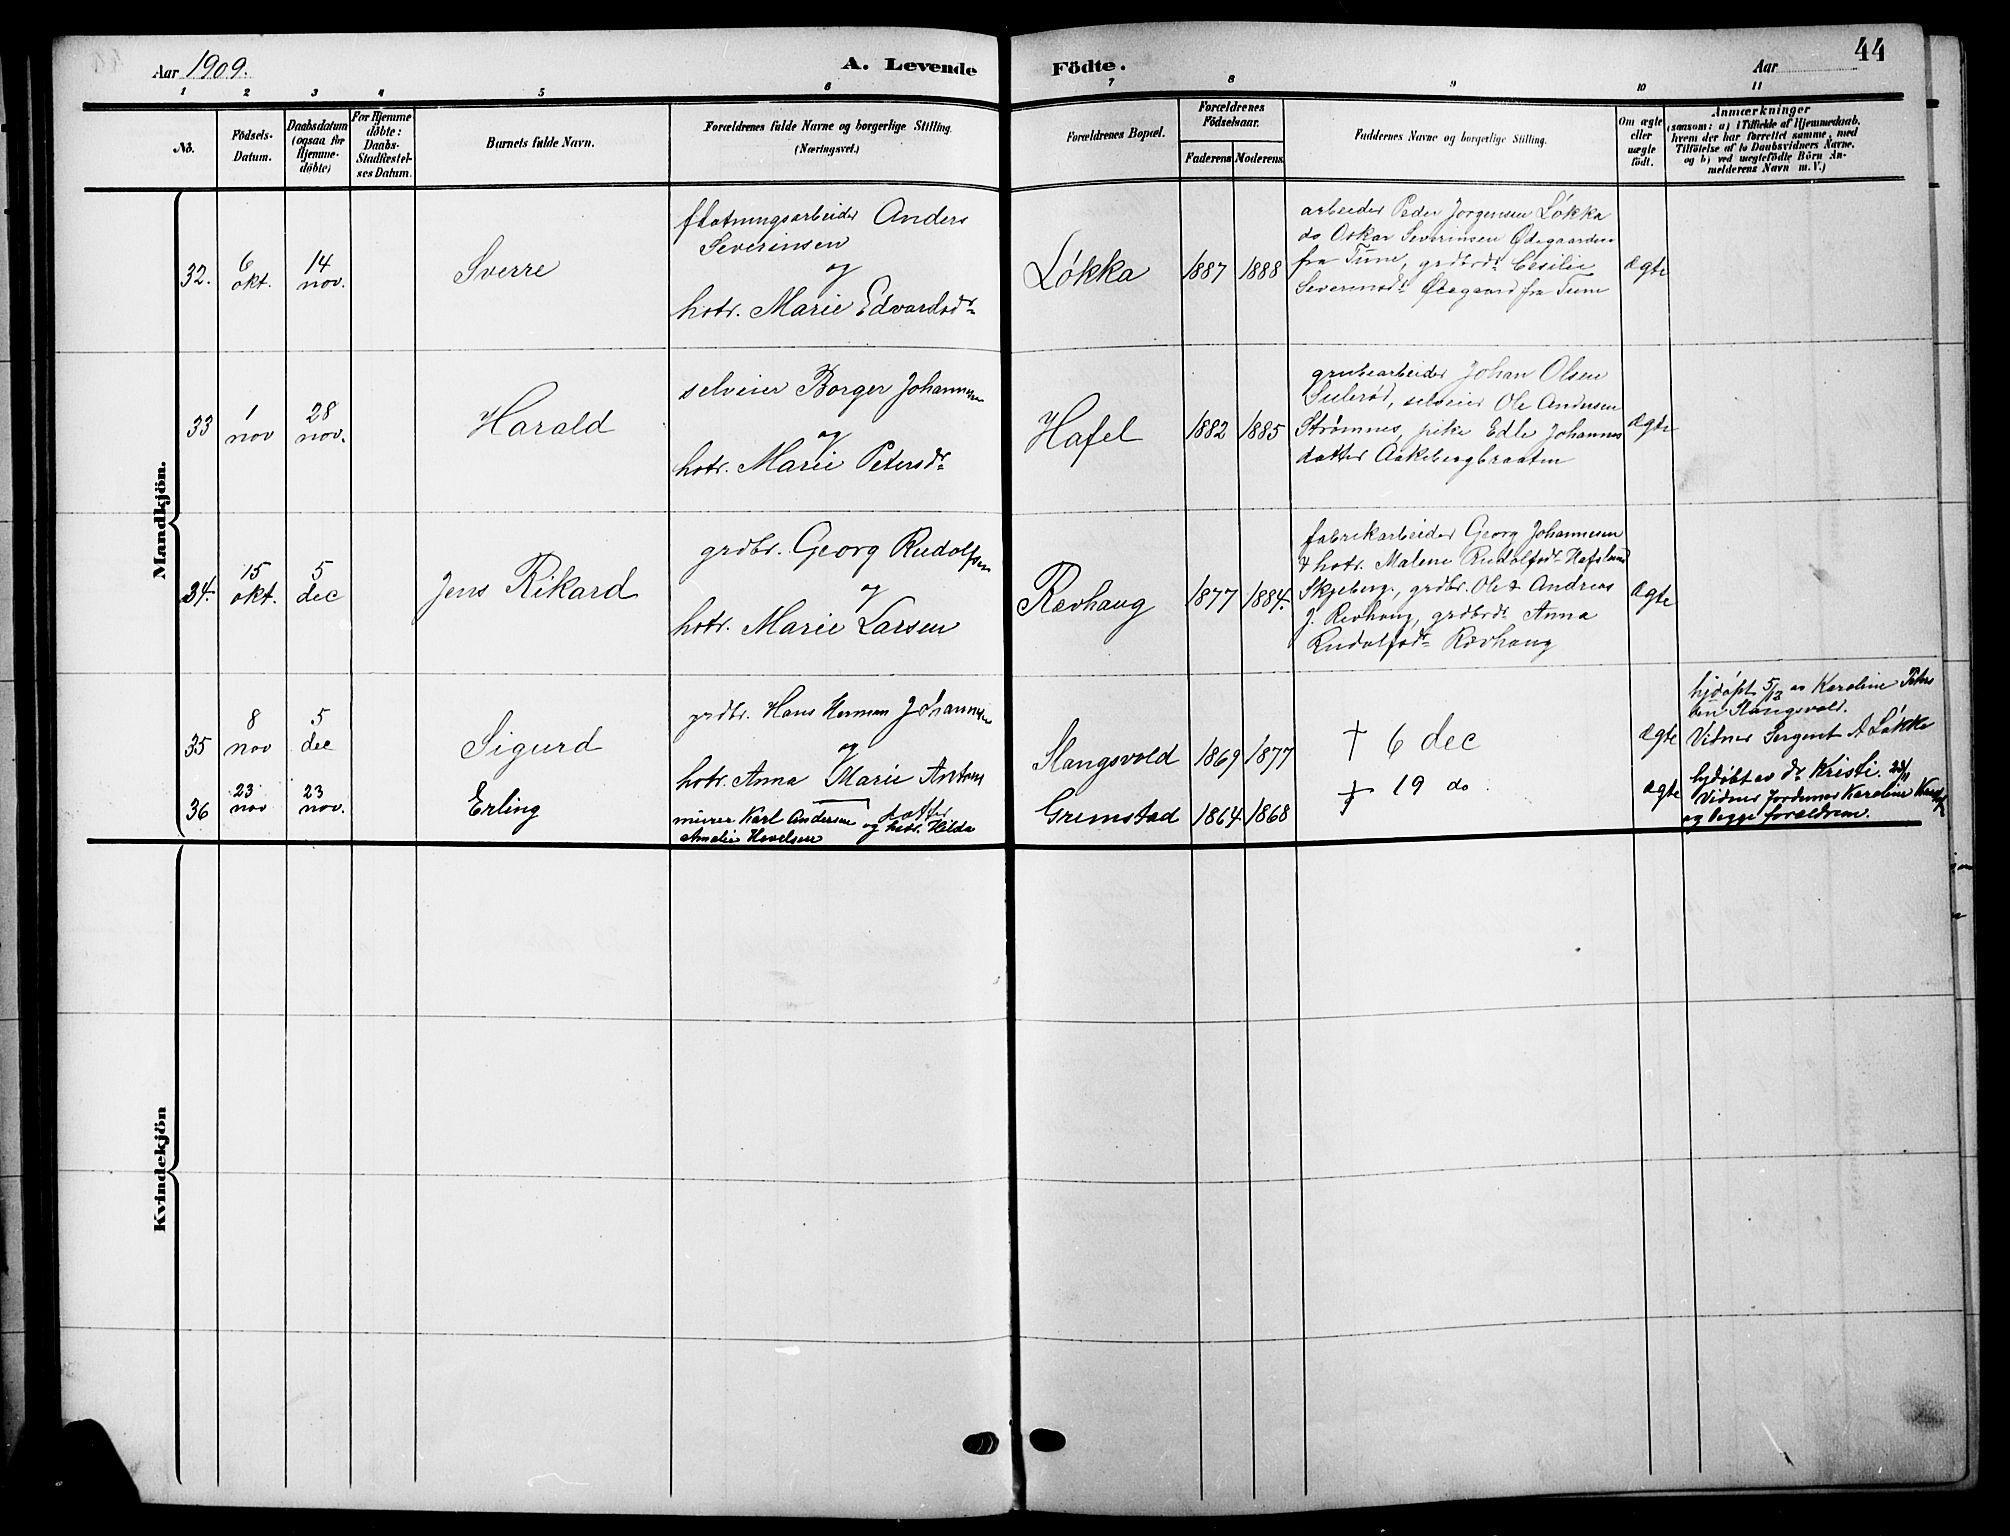 44
Aar 1909.
A. Levende Födte.
Aar
1 2 3 4 5 6 7 8 9 10 11
No.
Födsels-
Datum.
Daabsdatum
(ogsaa for
Hjemme-
döbte)
For Hjemme
döbte:
Daabs-
Stadfæstel-
ses Datum.
Barnets fulde Navn.
Forældrenes fulde Navne og borgerlige Stilling.
(Næringsvei.)
Forældrenes Bopæl.
Forældrenes
Födselsaar.
Faderens Moderens
Faddernes Navne og borgerlige Stilling.
Om ægte
eller
uægte
födt.
Anmærkninger
(saasom: a) i Tilfælde af Hjemmedaab.
hvem der har forrettet samme, med
Tilföielse af to Daabsvidners Navne.
og b) ved uægtefödte Börn An-
melderens Navn m. V.)
Mandkjön.
32.
6
okt.
14
nov.
Sverre
fløtningsarbeider Anders
Severinsen
og
hstr. Marie Edvardsdr
Løkka
1887 1888
arbeider Peder Jorgensen Løkka
do Oskar Severinsen Ødegaarden
fra Tune, grdbrdr Cesilie
Severinsdr Ødegaard fra Tune
ægte
33
1
nov
28
nov.
Harald
selveier Borger Johannesen
og
hstr. Marie Petersdr
Hafel
1882 1885
grubearbeider Johan Olsen
Sulerød, selveier Ole Andersen
Strømnes, pike Edle Johannes
datter Aakebergbraaten
ægte
34.
15
okt.
5
dec
Jens Rikard
grdbr. Georg Rudolfsen
og
hstr. Marie Larsen
Rævhaug
1877 1884.
fabrikarbeider Georg Johannesen
& hstr. Malene Rudolfsdr Hafslund
Skjeberg, grdbr. Ole & Andreas
J. Revhaug, grdbrdr Anna
Rudolfsdr Rævhaug
ægte
35
8
nov
5
dec
Sigurd
grdbr. Hans Herman Johannesen
og
hstr. Anna Marie Antons
datter
Slangsvold
1869 1877
† 6 dec
ægte
hjdøpt 5/12 av Karoline Peter
sen Slangsvold.
Vidner Sergent A Løkke
36
23
nov
23
nov.
Erling
murer Karl Andersen og hstr. Hilda
Amalie Havelsen
Gremstad
1864 1868
† 19 do.
ægte
hjdøbt av dr Kristi. 23/11
Vidner Jordemor Karoline
og begge forældrene.
Kvindekjön